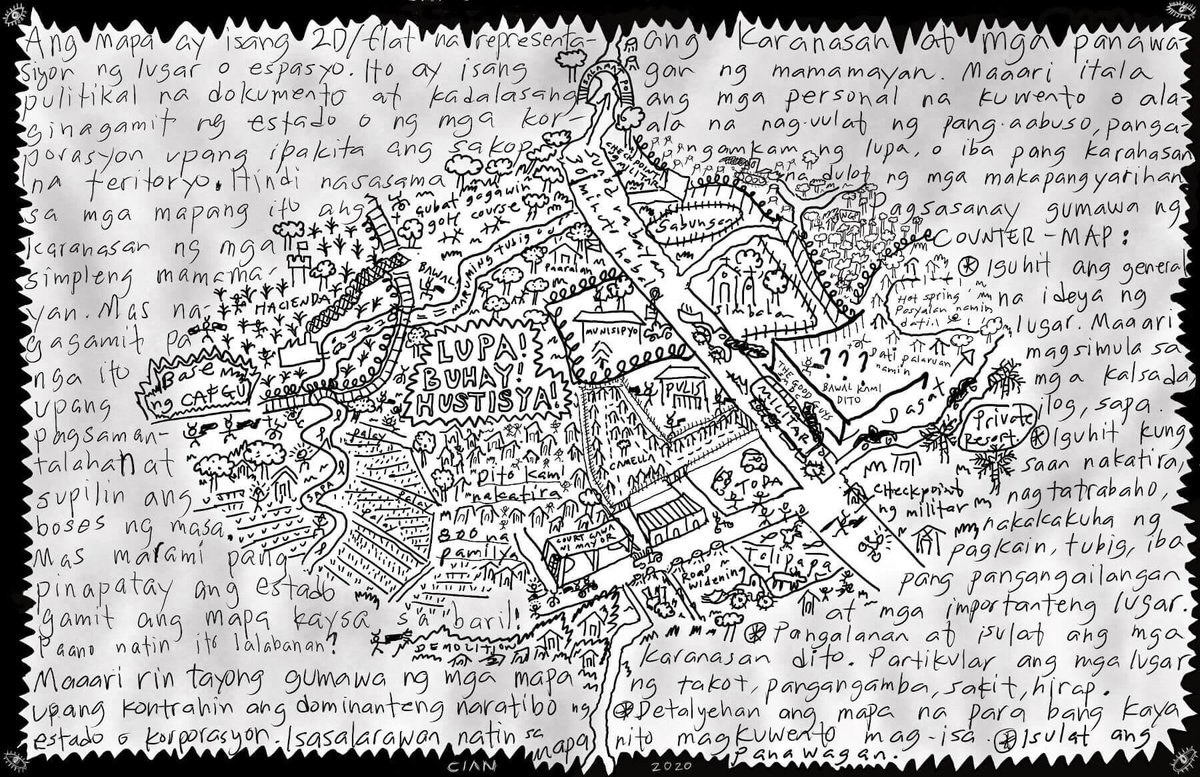 Ang mapa ay isang 2D/flat na representa-
siyon ng lugar o espasyo. Ito ay isang
pulitikal na dokumento at kadalasang
ginagamit ng estado o ng mga kor-
porasyon upang ipakita ang sakop
na teritoryo. Hindi nasasama
sa mga mapang ito ang
karanasan ng mga
simpleng mamama-
yan. Mas na-
gagamit pa
nga ito
upang
pagsaman-
talahan at
supilin ang
boses ng masa.
Mas marami pang
pinapatay ang estado
gamit ang mapa kaysa sa baril!
Paano natin ito lalabanan?
Maaari rin tayong gumawa ng mga mapa
upang kontrahin ang dominanteng naratibo ng
estado o korporasyon. Isasalarawan natin sa mapa
ang karanasan at mga panawa-
gan ng mamamayan. Maaari itala
ang mga personal na kuwento o ala-
ala na nag-uulat ng pang-aabuso, panga-
ngamkam ng lupa, o iba pang karahasan
na dulot ng mga makapangyarihan.
Pagsasanay gumawa ng
COUNTER-MAP:
Iguhit ang general
na ideya ng
lugar. Maaari
magsimula sa
mga kalsada,
ilog, sapa.
Iguhit kung
saan nakatira,
nagtatrabaho,
nakakakuha ng
pagkain, tubig, iba
pang pangangailangan
at mga importanteng lugar.
Pangalanan at isulat ang mga
karanasan dito. Partikular ang mga lugar
ng takot, pangangamba, sakit, hirap.
Detalyehan ang mapa na para bang kaya
nito magkuwento mag-isa. Isulat ang
panawagan.
gubat gagawin
golf course
BAWAL
MARUMING
TUBIG
Paaralan
HACIENDA
Base
ng CAFGU
LUPA!
BUHAY!
HUSTISYA!
MUNISIPYO
Sabungan
Simbahan
Hot spring
Pasyalan namin
dati
???
Dati palaruan
namin
BAWAL KAMI
DITO
Dagat
Private
Resort
THE GOOD GUYS
MILITAR
PULIS
CAMELLA
TODA
Checkpoint
ng militar
Palay
SAPA
Dito kami
nakatira
800 na
pamilya
COURT GAWA
NI MAYOR
ROAD
WIDENING
Talipapa
DEMOLITION
CIAN 2020